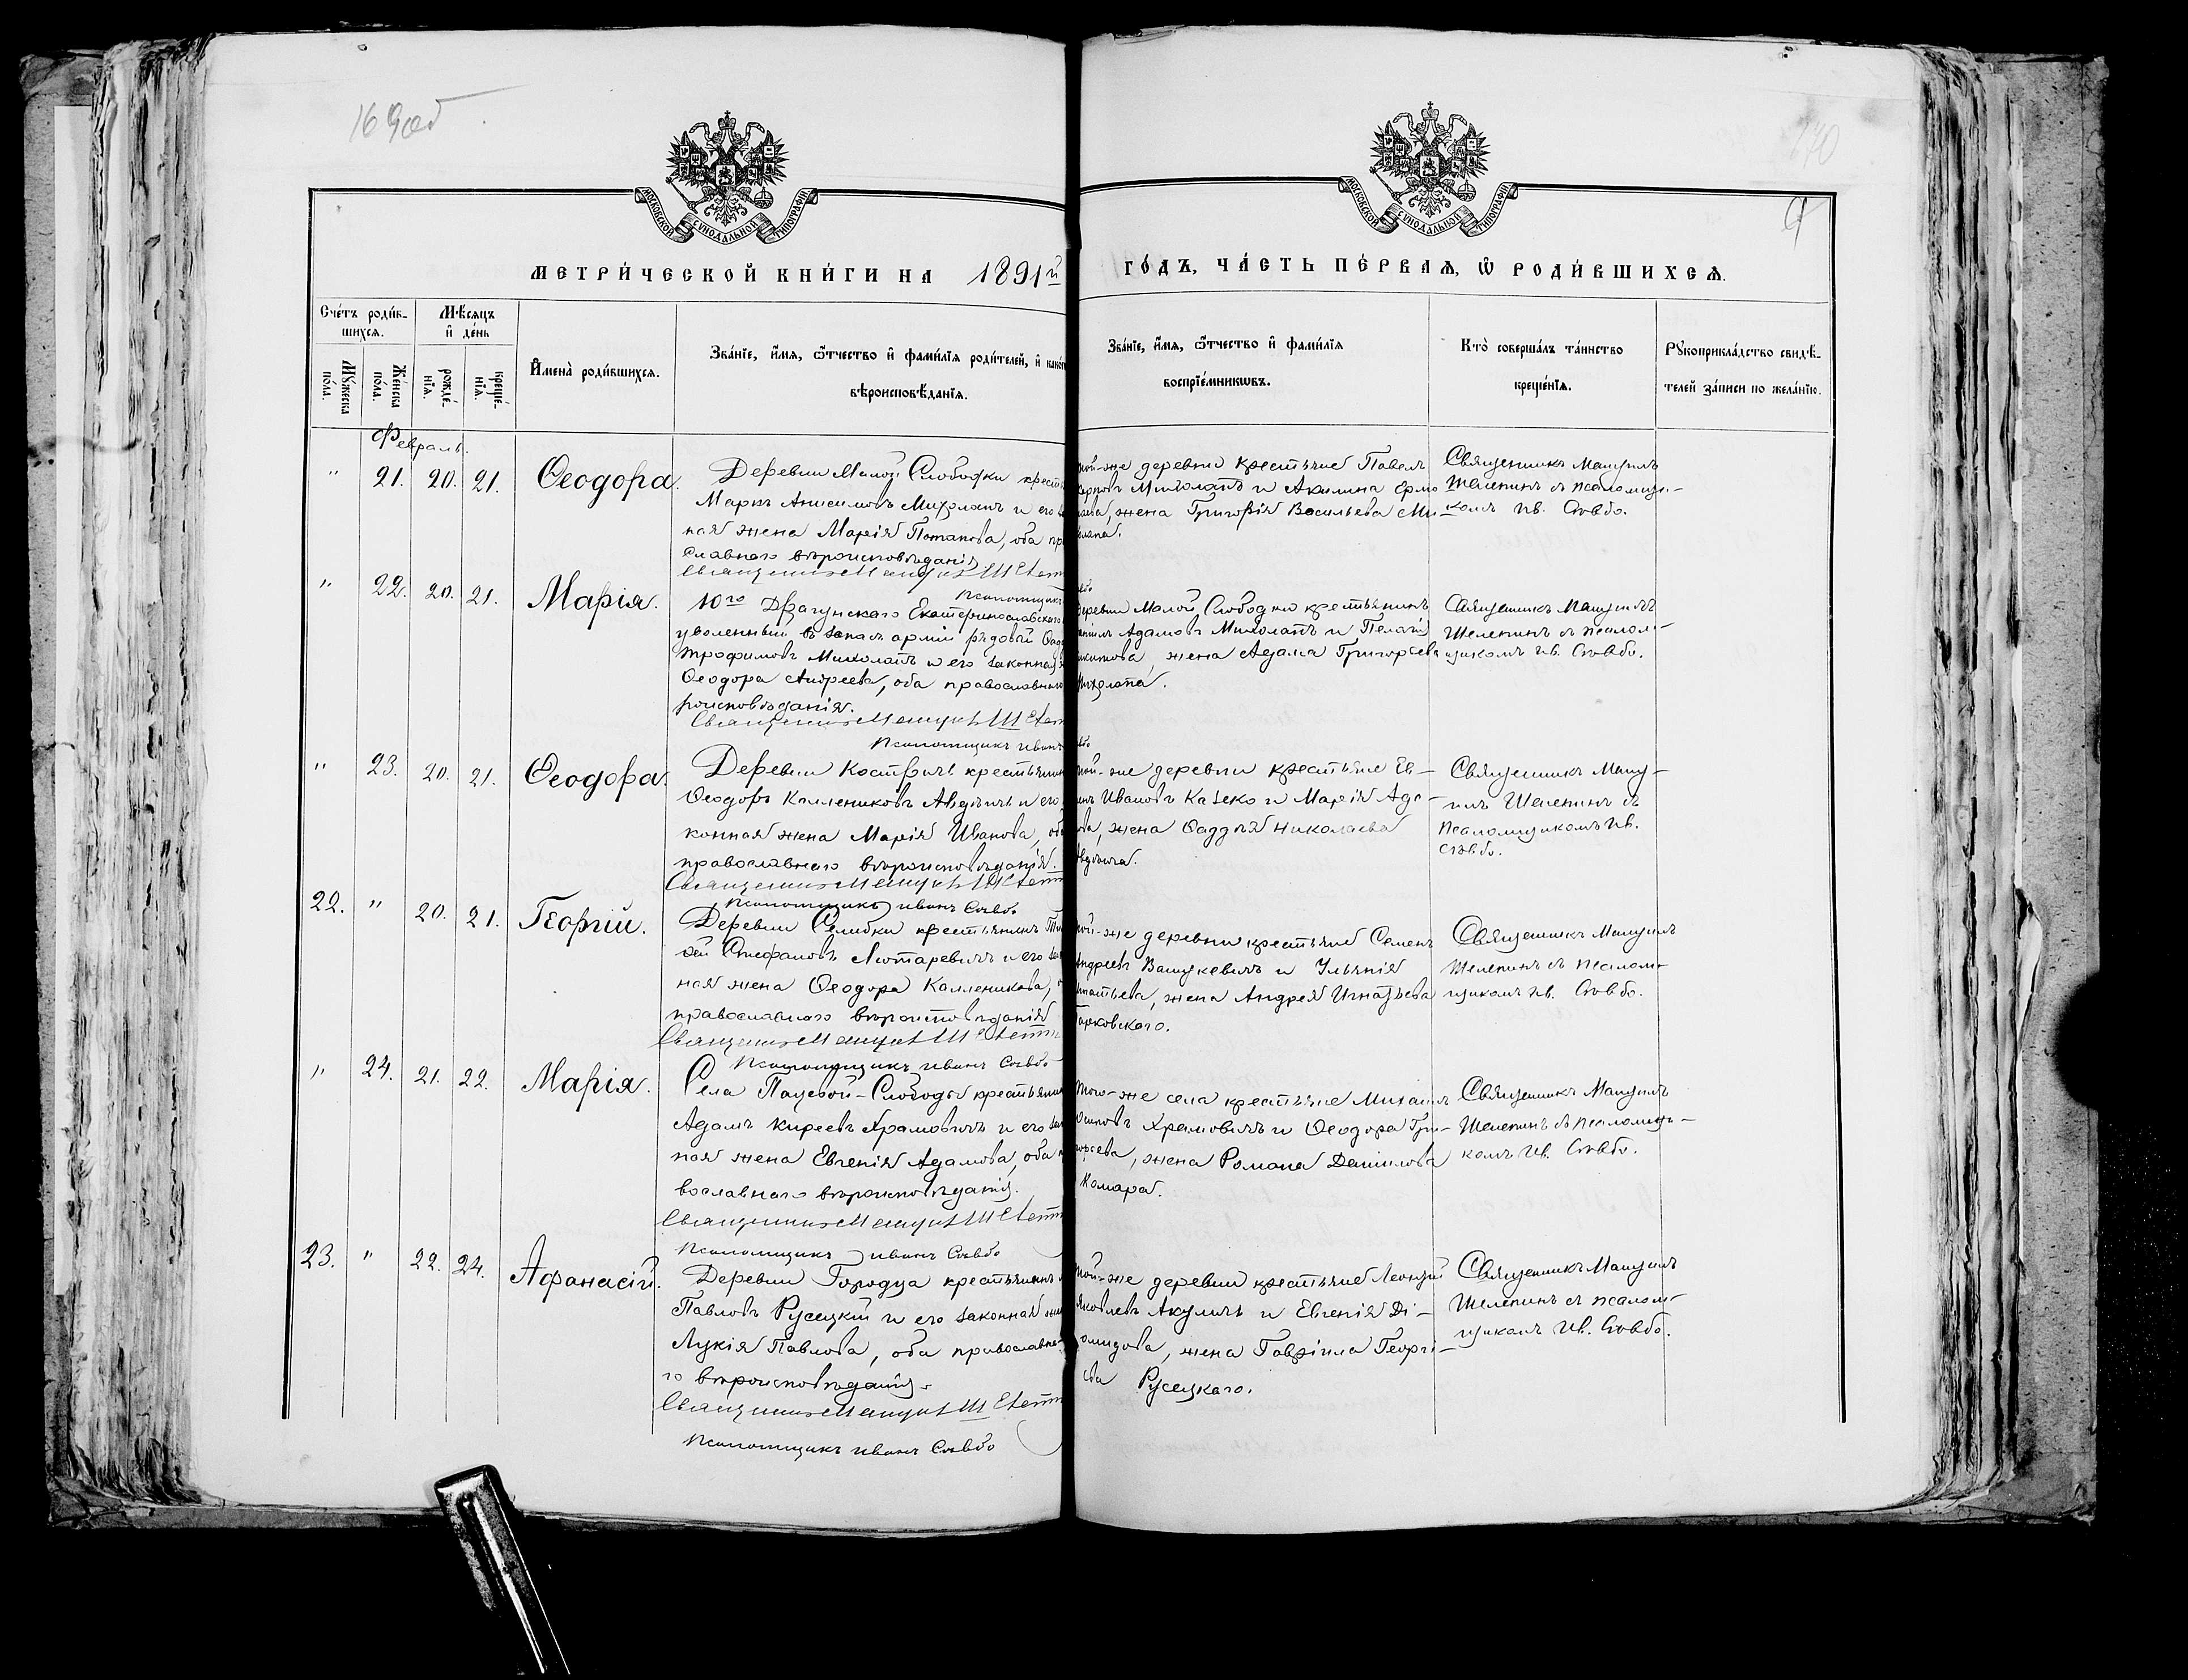 169об
170
МОСКОВСКОЙ СѴНОДАЛЬНОЙ ТИПОГРАФІИ
МОСКОВСКОЙ СѴНОДАЛЬНОЙ ТИПОГРАФІИ
МЕТРИ́ЧЕСКОЙ КНИ́ГИ НА 1891й
ГО́ДЪ, ЧА́СТЬ ПЕ́РВАЯ, Ѡ РОДИ́ВШИХСЯ.
Сче́тъ роди́в-
шихся.
Мѣ́сяцъ
и де́нь
Му́жеска по́ла.
Же́нска по́ла.
рожде́-
нїя.
креще́-
нїя.
Имена̀ роди́вшихся.
Зва́нїе, и́мя, ѻ́тчество и фами́лїя роди́телей, и како́
вѣроисповѣ́данїя.
Зва́нїе, и́мя, ѻ́тчество и фами́лїя
воспрїе́мникѡвъ.
Кто̀ соверша́лъ та́инство
креще́нїя.
Рꙋкоприкла́дство свидѣ́-
телей за́писи по жела́нїю.
Февраль.
" 21. 20. 21. Ѳеодора.
Деревни Малой Слободки крест
Маркъ Анисимовъ Михолапъ и его
ная жена Марія Потапова, оба пр
славнаго вѣроисповѣданія
Священникъ Мануилъ Шелеп
Псаломщикъ
той-же деревни крестьяне Павелъ
Михолапъ и Акилина Ермо
лаева, жена Григорія Васильева Ми
холапа.
Священникъ Мануилъ
Шелепинъ съ псаломщи-
комъ Ив. Съвбо.
" 22. 20. 21. Марія.
10го Драгунскаго Екатеринославскаго
уволенный въ запасъ арміи рядовой Ѳад
Трофимовъ Михолапъ и его законная ж
Ѳеодора Андреева, оба православнаго
роисповѣданія.
Священникъ Мануилъ Шелеп
Псаломщикъ Иванъ
деревни Малой Слободки крестьянинъ
Адамовъ Михолапъ и Пелагія
Никитова, жена Адама Григорьева
Михолапа.
Священникъ Мануилъ
Шелепинъ съ псалом-
щикомъ Ив. Съвбо.
" 23. 20. 21. Ѳеодора.
Деревни Костричь крестьянин
Ѳеодоръ Каллениковъ Авдѣичъ и его
конная жена Марія Иванова, об
православнаго вѣроисповѣданія.
Священникъ Мануилъ Шелеп
Псаломщикъ Иванъ Съвбо
той-же деревни крестьяне Ев-
Ивановъ Казеко и Марія Ада-
ова, жена Ѳаддѣя Николаева
Авдѣича.
Священникъ Ману-
илъ Шелепинъ съ
псаломщикомъ Ив.
Съвбо.
22. " 20. 21. Георгій.
Деревни Селибки крестьянинъ Тим
ѳей Стефановъ Лютаревичъ и его зак
ная жена Ѳеодора Калленикова,
православнаго вѣроисповѣданія
Священникъ Мануилъ Шелепи
Псаломщикъ Иванъ Съвбо
той-же деревни крестьяне Семенъ
Андреевъ Вашукевичъ и Ульянія
Игнатьева, жена Андрея Игнатьева
Священникъ Мануилъ
Шелепинъ съ псалом-
щикомъ Ив. Съвбо.
" 24. 21. 22. Марія.
Села Пацевой-Слободы крестьянин
Адамъ Киреевъ Храмовичъ и его зак
ная жена Евгенія Адамова, оба п
вославнаго вѣроисповѣданія.
Священникъ Мануилъ Шелепи
Псаломщикъ Иванъ Съвбо
того-же села крестьяне Михаилъ
Осиповъ Храмовичъ и Ѳеодора Гри-
горьева, жена Романа Данилова
Комара.
Священникъ Мануилъ
Шелепинъ съ псаломщи-
комъ Ив. Съвбо.
23. " 22. 24. Афанасій.
Деревни Городца крестьянинъ
Павловъ Русецкій и его законная жен
Лукія Павлова, оба православна-
го вѣроисповѣданія.
Священникъ Мануилъ Шелепи
Псаломщикъ Иванъ Съвбо
той-же деревни крестьяне Леонтій
Яковлевъ Акуличъ и Евгенія Ді-
омидова, жена Гавріила Георгі-
ева Русецкаго.
Священникъ Мануилъ
Шелепинъ съ псалом-
щикомъ Ив. Съвбо.